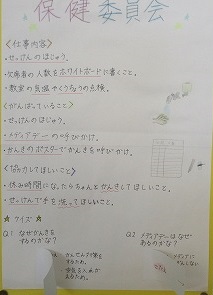 保健委員会
〈仕事内容〉
・せっけんのほじゅう。
・欠席者の人数をホワイトボードに書くこと。
・教室の気温やくうちょうの点検。
〈がんばっていること〉
・せっけんのほじゅう。
・メディアデーの呼びかけ。
・かんきのポスターでかんきを呼びかけ。
〈協力してほしいこと〉
・休み時間になったらちゃんとかんきしてほしいこと。
・せっけんで手を洗ってほしいこと。
☆クイズ
Q1 なぜかんきをするのかな?
Q2 メディアデーはなぜあるのかな?